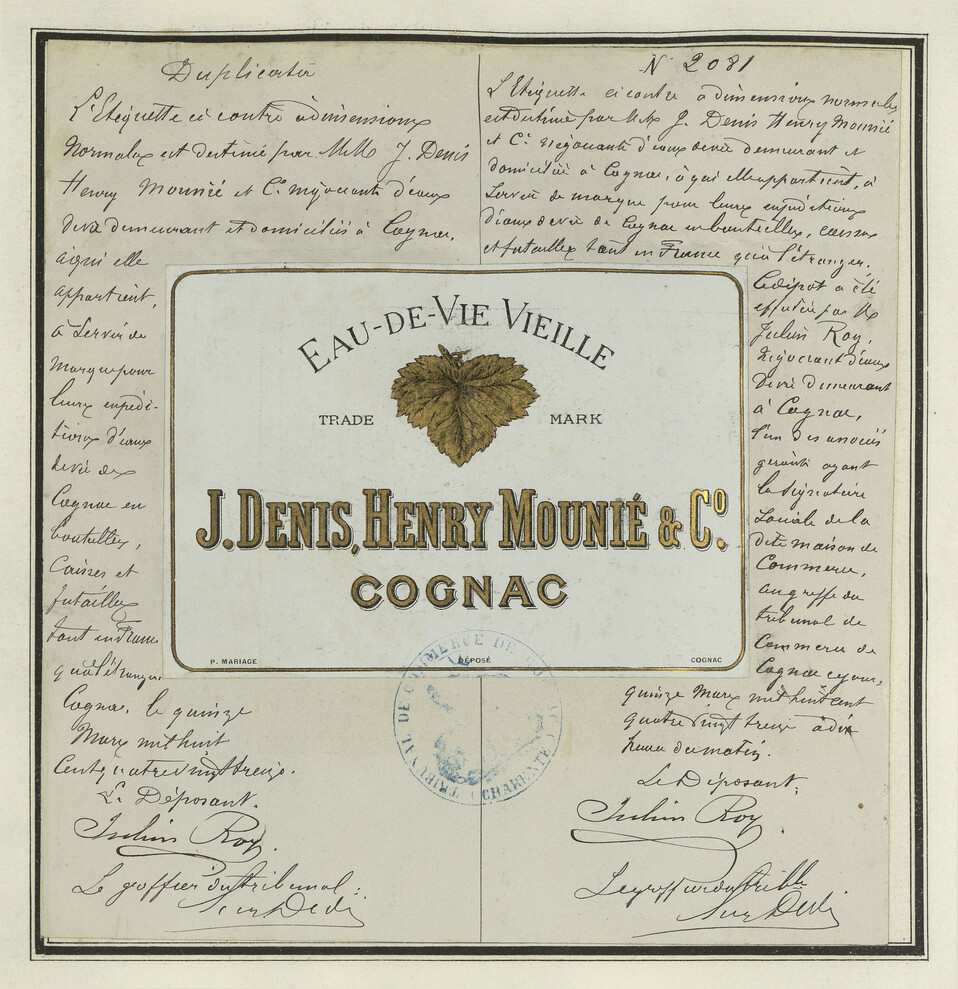 Duplicata
L'Etiquette ci contre à dimensions
Normales est destiné par MM J. Denis
Henry Mounié et Cⁱᵉ négociants d'eaux
de vie demeurant et domiciliés à Cognac,
à qui elle
appartient,
à Servir de
Marque pour
leurs expédi-
tions d'eaux
de vie de
Cognac en
bouteilles,
Caisses et
futailles
tant en France
qu'à l'étranger.
Cognac, le quinze
Mars mil huit
Cent quatre vingt treize.
Le Déposant.
Julien Roy.
Le greffier du tribunal :
N° 2081
L'Etiquette ci contre à dimensions normales
est destiné par MM J. Denis Henry Mounié
et Cⁱᵉ négociants d'eaux de vie demeurant et
domiciliés à Cognac, à qui elle appartient, à
Servir de marque pour leurs expéditions
d'eaux de vie de Cognac en bouteilles, caisses
et futailles tant en France qu'à l'étranger.
Le dépot a été
effectué par M
Julien Roy,
Négociant d'eaux
de vie demeurant
à Cognac,
l'un des associés
gérants ayant
la signature
Sociale de la
dite maison de
Commerce,
au greffe du
tribunal de
Commerce de
Cognac ce jour,
quinze Mars mil huit cent
quatre vingt treize à dix
heures du matin.
Le Déposant,
Julien Roy.
Le greffier du tribl
EAU-DE-VIE VIEILLE
TRADE MARK
J. DENIS, HENRY MOUNIÉ & Cº.
COGNAC
P. MARIAGE DÉPOSÉ COGNAC
TRIBUNAL DE COMMERCE DE
CHARENTE